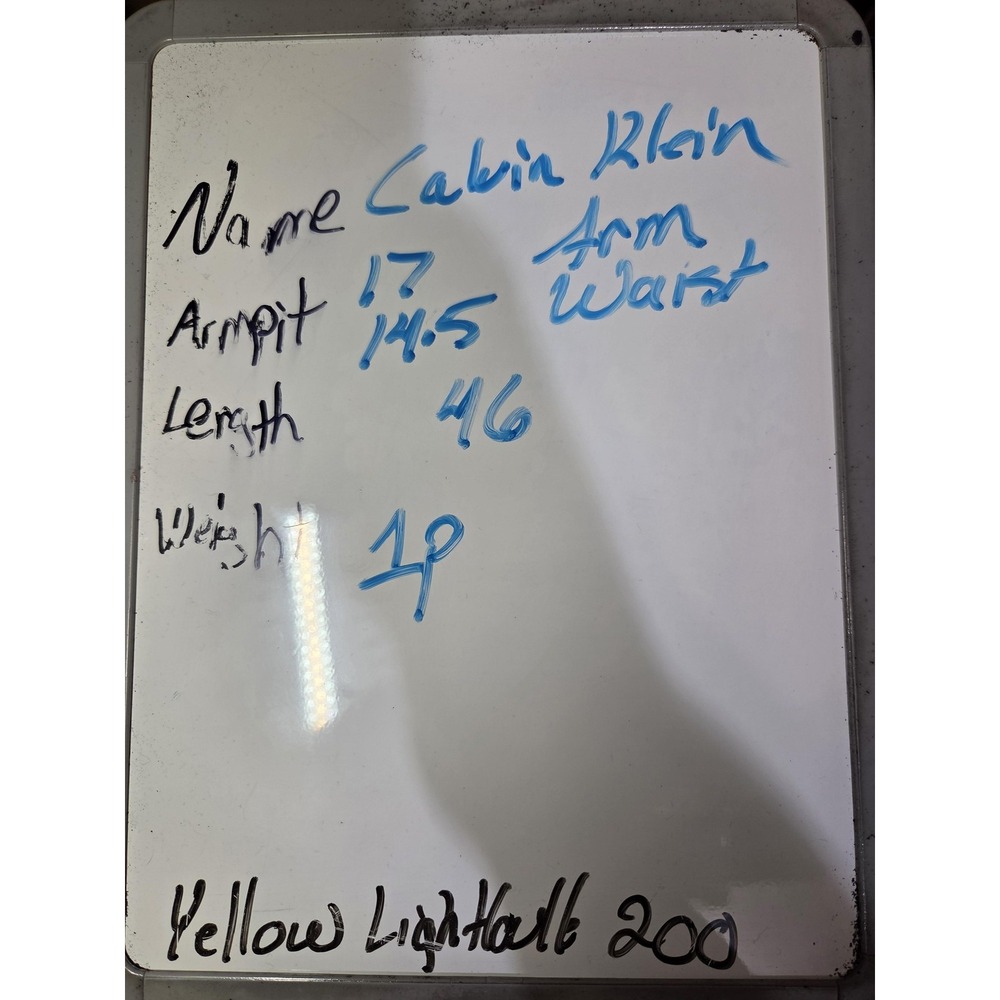 Name Calvin Klein
Armpit 17 Arm
14.5 Waist
Length 46
Weight 1p
Yellow 200